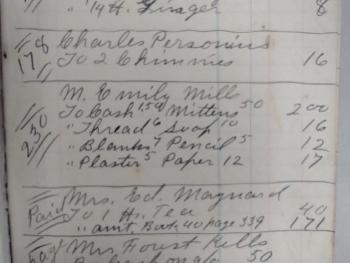 " 1/4 H. Ginger 8
178 Charles Personius
To 2 Chimnies 16
M. Emily Mills
230 To Cash 150 Mittens 50 200
" Thread 6 Soap 10 16
" Blanks 7 Pencil 5 12
" Plaster 5 Paper 12 17
Paid Mrs. Ed. Maynard
To 1 H. Tea 40
" amt. Bot. 40 page 339 171
Mrs Forest Kells
50